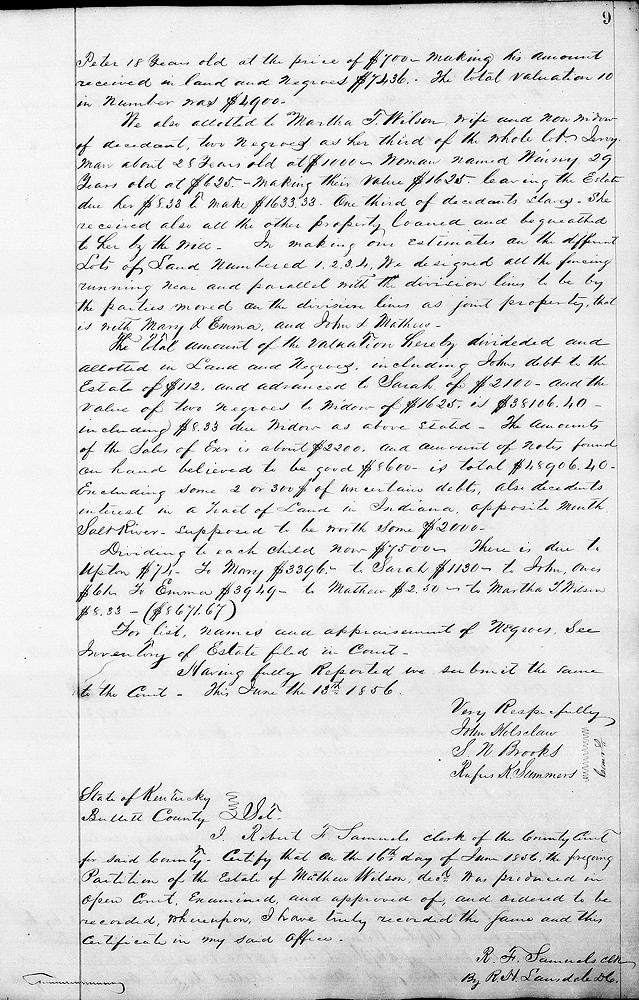 9
Peter 18 Years old at the price of $700 - making his amount
received in land and Negroes $7436. - The total valuation 10
in number was $4900 -
We also allotted to Martha T. Wilson, wife and now widow
of decedant, two Negroes as her third of the whole lot,
man about 28 Years old at $1000 - Woman named 29
Years old at $625. - making their value $1625. leaving the Estate
due her $8.33 to make $1633.33 - One third of decedants slaves - She
received also all the other property loaned and bequeathed
to her by the will - In making our estimates on the different
Lots of Land Numbered 1, 2, 3, 4, We designed all the fencing
running near and parallel with the division lines to be by
the parties moved on the division lines as joint property, that
is with Mary & Emma, and John & Mathew -
The total amount of the valuation hereby divideded and
allotted in Land and Negroes, including Johns debt to the
Estate of $112, and advanced to Sarah of $2100 - and the
value of two negroes to widow of $1625. is $38106.40 -
including $8.33 due widow as above stated - The amounts
of the Sales of Exor is about $2200. and amount of notes found
on hand believed to be good $8600 - is total $48906.40 -
Excluding some 2 or 300$ of uncertain debts, also decedents
interest in a tract of Land in Indiana, opposite mouth
Salt River - supposed to be worth some $2000 -
Dividing to each child now $7500 - There is due to
Upton $74 - To Mary $3396. - to Sarah $1130 - to John, owes
To Emma $3949 - to Mathew $2.50 - to Martha T. Wilson
$8.33 - ($8671.67)
For list, names and appraisement of Negroes, See
Inventory of Estate filed in Court -
Having fully Reported we submit the same
to the Court - This June the 13th 1856.
Very Respectfully
John Holsclaw
S. N. Brooks
Rufus K Summers
State of Kentucky
Bullitt County Sct.
I Robert F Samuels clerk of the County Court
for said County - Certify that on the 16th day of June 1856, the foregoing
Partition of the Estate of Mathew Wilson, decd. was produced in
open Court, Examined, and approved of, and ordered to be
recorded, whereupon, I have truly recorded the same and this
certificate in my said office -
R. F. Samuels clk
By R. H. Lansdale DC.